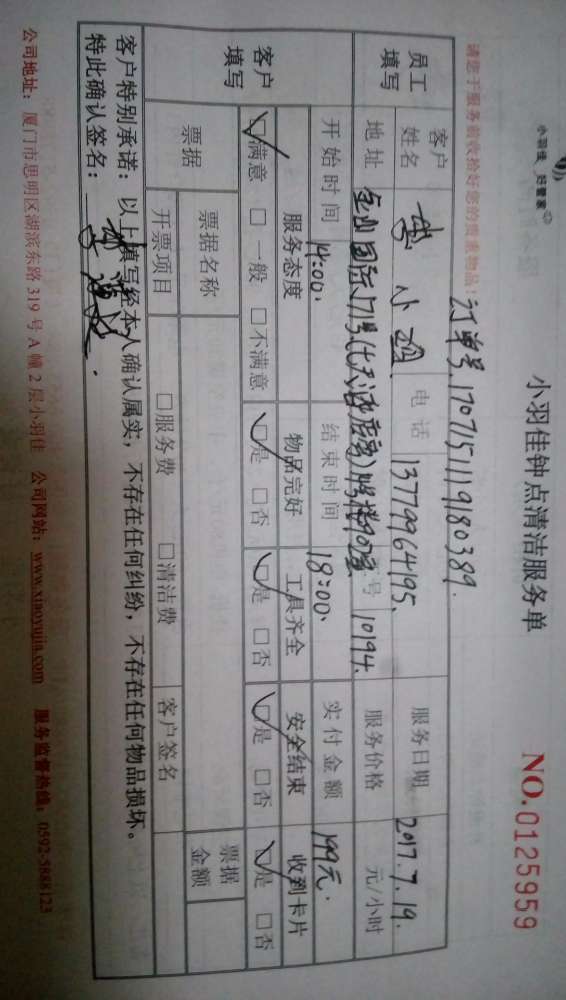 小羽佳 好管家
小羽佳钟点清洁服务单
NO.0125959
订单号.1707151119180389.
请您于服务前收拾好您的贵重物品!
员工填写
客户姓名 小 电话 13779964195. 服务日期 2017.7.19.
地址 金山国际 号 10194. 服务价格 元/小时
开始时间 14:00. 结束时间 18:00. 实付金额 199元.
客户填写
服务态度 物品完好 工具齐全 安全结束 收到卡片
☑满意 □一般 □不满意 ☑是 □否 ☑是 □否 ☑是 □否 ☑是 □否
票据 票据名称 票据金额
开票项目 □服务费 □清洁费 客户签名
客户特别承诺:以上填写经本人确认属实,不存在任何纠纷,不存在任何物品损坏。
特此确认签名:
公司地址:厦门市思明区湖滨东路 319 号 A 幢 2 层小羽佳 公司网站:www.xiaoyujia.com 服务监督热线:0592-5888123